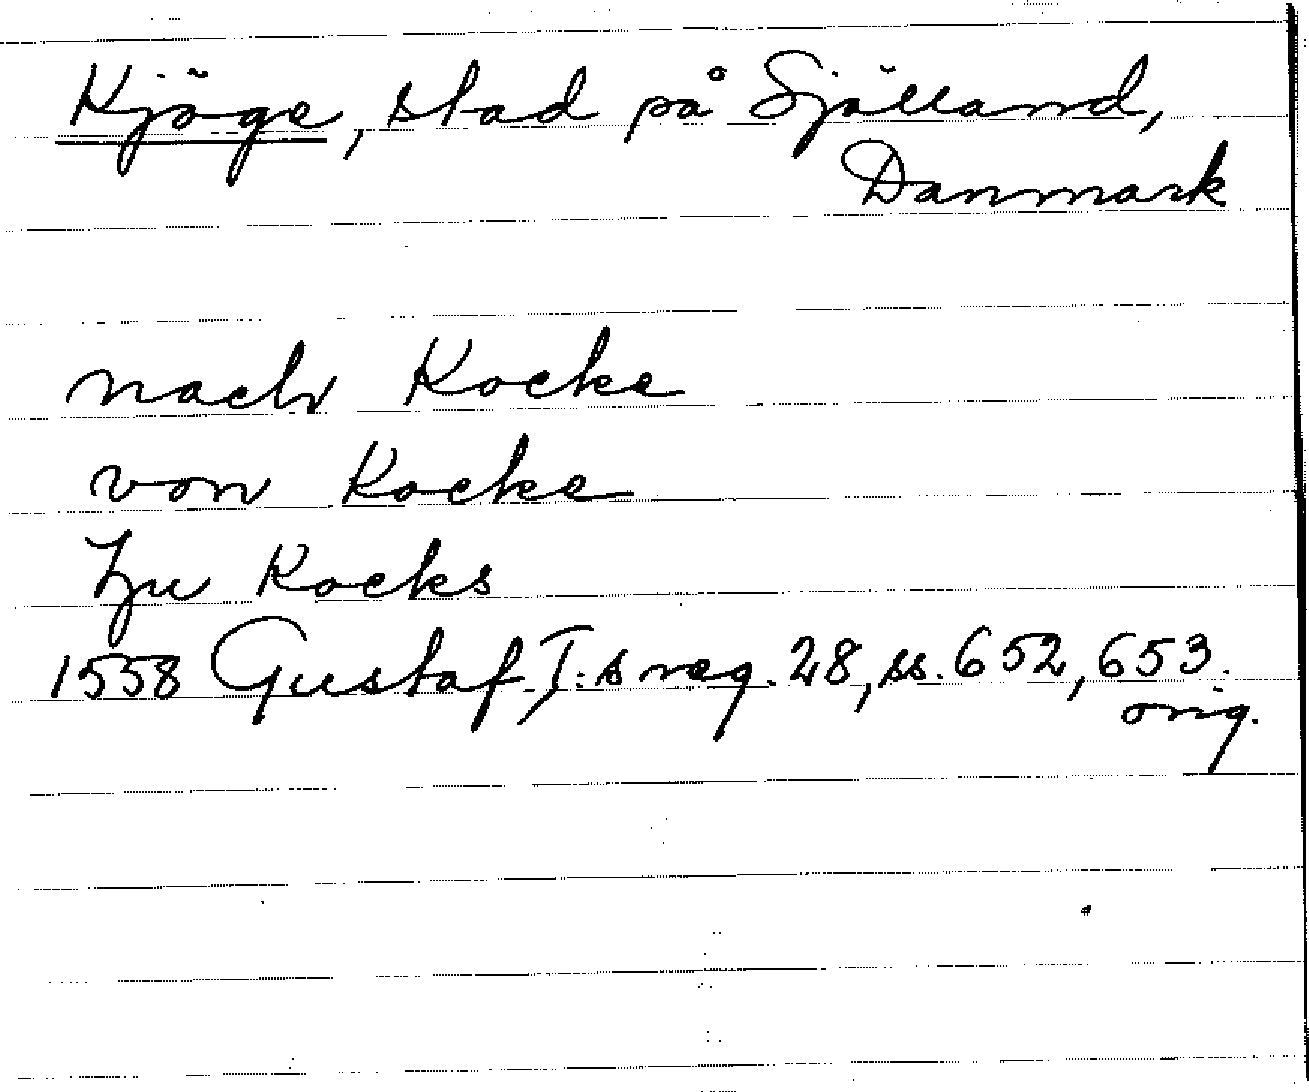 Kjöge, stad på Själland,
Danmark
nach Kocke
von Kocke
Zu Kocks
1558 Gustaf I:s reg. 28, ss. 652, 653.
orig.